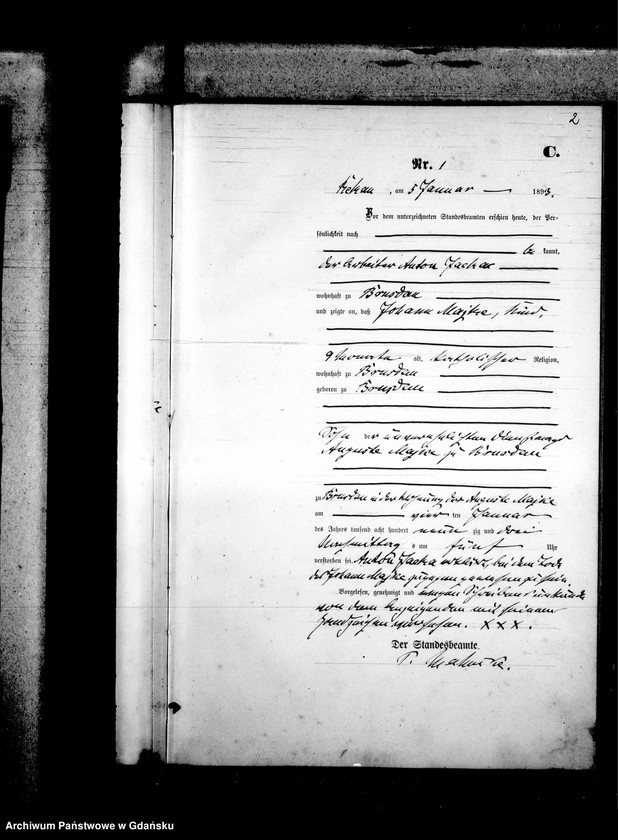 2
C.
Nr. 1
am 5 Januar 1893.
Vor dem unterzeichneten Standesbeamten erschien heute, der Per-
sönlichkeit nach
be kannt,
der Arbeiter Anton
wohnhaft zu
und zeigte an, daß Johann Majke, Kind,
9 Monate alt, katholischer Religion,
wohnhaft zu
geboren zu
Sohn der unverehelichten Dienstmagd
Auguste Majke zu
zu in der Wohnung der Auguste Majke
am vier ten Januar
des Jahres tausend acht hundert neun zig und drei
Nachmittag s um fünf Uhr
verstorben sei. Anton erklärt, bei dem Tode
des Johann Majke zugegen gewesen zu sein.
Vorgelesen, genehmigt und wegen Schreibensunkunde
von dem Anzeigenden mit seinem
Handzeichen versehen. XXX.
Der Standesbeamte.
Archiwum Państwowe w Gdańsku